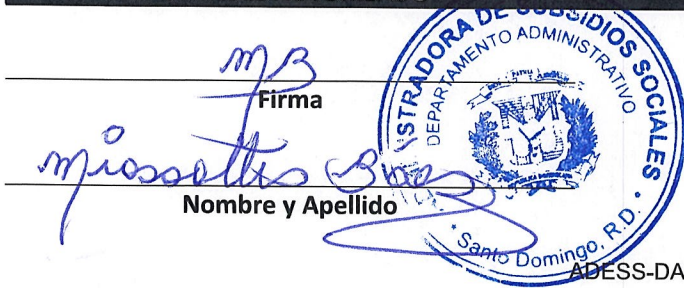 MB
Firma
Miossottis
Nombre y Apellido
ISTRADORA DE SUBSIDIOS SOCIALES
DEPARTAMENTO ADMINISTRATIVO
Santo Domingo, R.D.
ADESS-DA